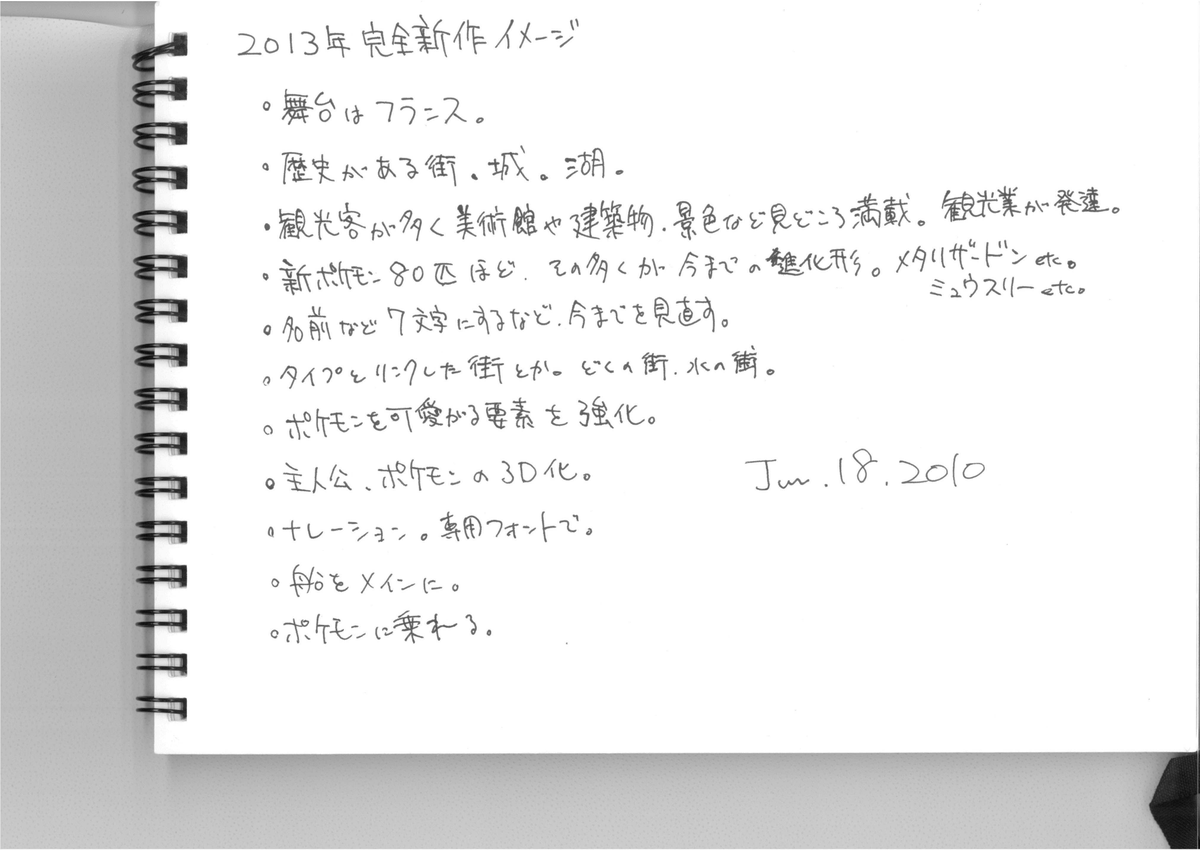 2013年 完全新作 イメージ
・舞台はフランス。
・歴史がある街。城。湖。
・観光客が多く美術館や建築物、景色など見どころ満載。観光業が発達。
・新ポケモン80匹ほど、その多くが今までの進化形。メタリザードン etc。
ミュウスリー etc。
・名前など7文字にするなど、今までを見直す。
・タイプとリンクした街とか。どくの街、水の街。
・ポケモンを可愛がる要素を強化。
・主人公、ポケモンの3D化。
Jun.18.2010
・ナレーション。専用フォントで。
・船をメインに。
・ポケモンに乗れる。